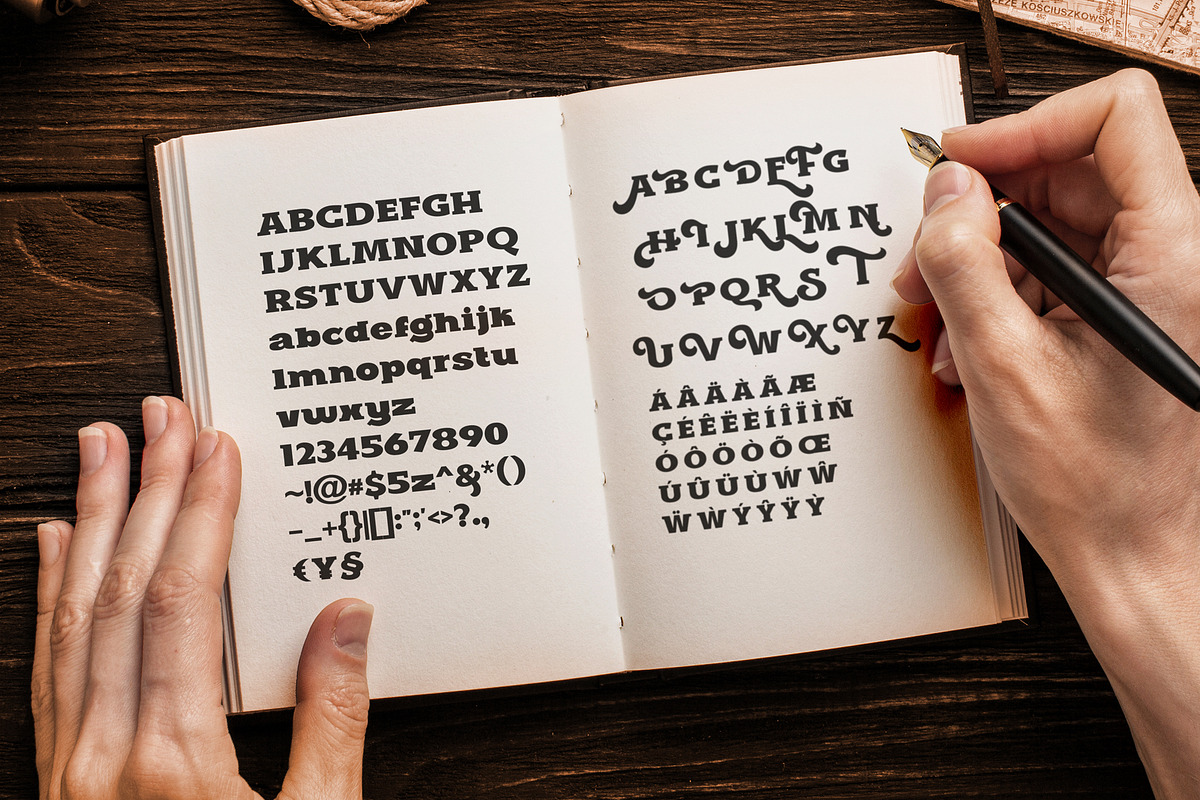 ABCDEFGH
IJKLMNOPQ
RSTUVWXYZ
abcdefghijk
lmnopqrstu
vwxyz
1234567890
~!@#$5z^&*()
-_+{}|[]:";'<>?.,
€¥§
ABCDEFG
HIJKLMN
OPQRST
UVWXYZ
ÁÂÄÀÃÆ
ÇÉÊËÈÍÎÏÌÑ
ÓÔÖÒÕŒ
ÚÛÜÙẂŴ
ẄẀÝŶŸỲ
KOŚCIUSZKOWSKIE